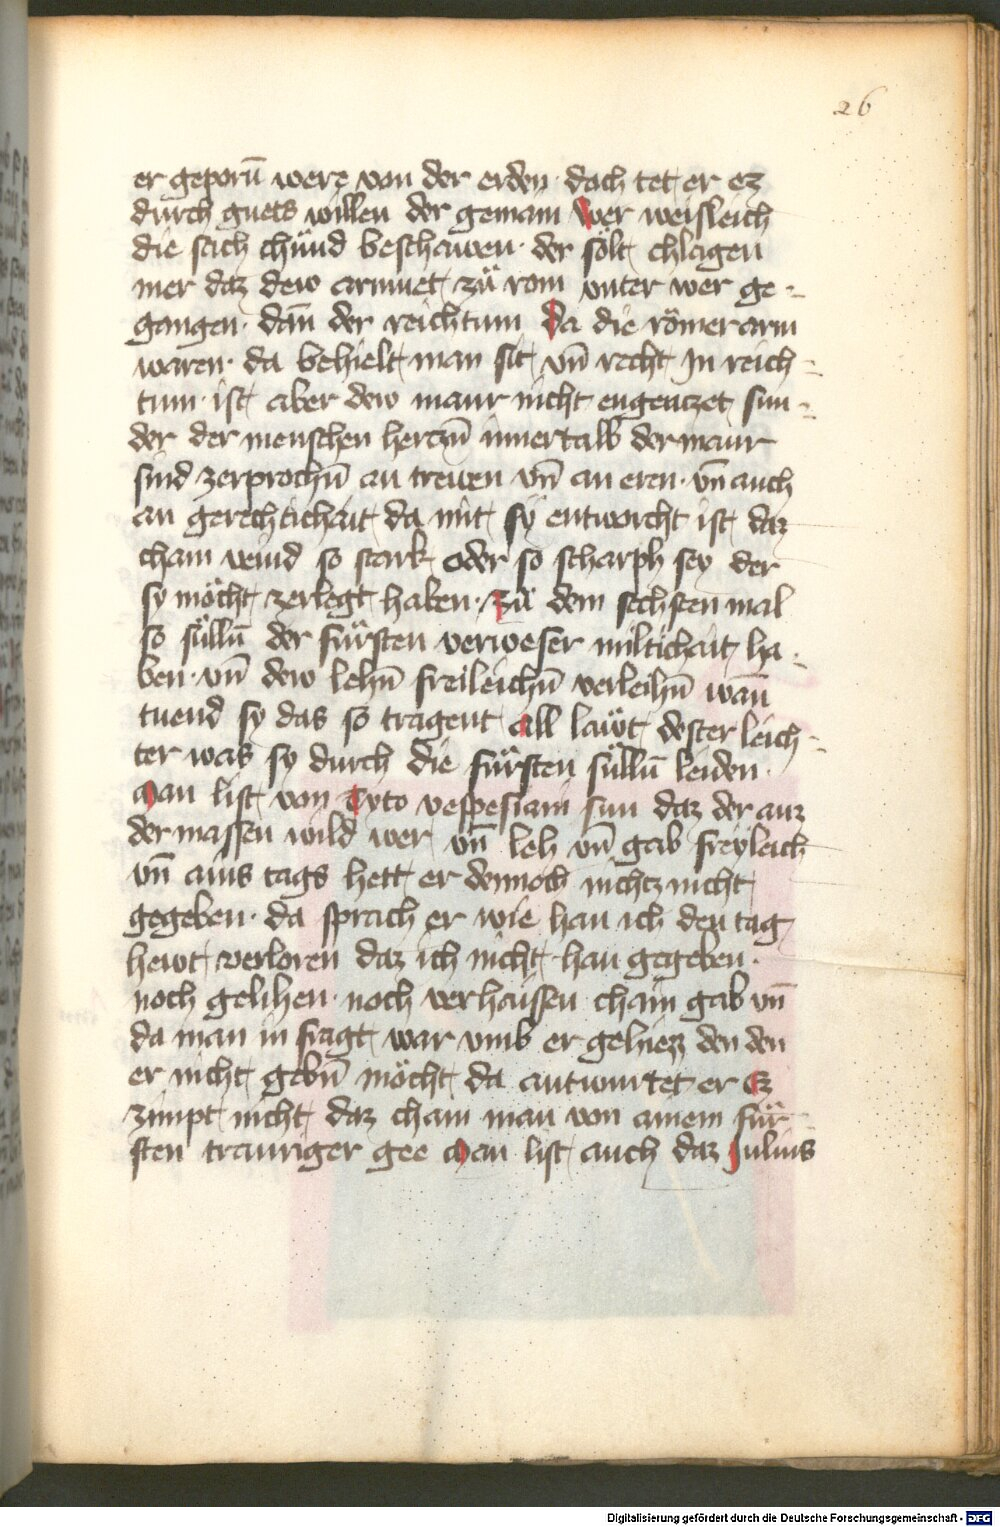 26
er geporn̄ were von der erden · doch tet er ez
durch guets willen der gemain Wer weisleich
die sach chünd beschawen · der sölt chlagen
mer daz dew armuet zů rom vnter wer ge-
gangen · dan̄ der reichtum Da die römer arm
waren · da behielt man sit vn̄ recht In reich-
tum · ist aber dew maur nicht engenczet sun-
der der menschen herczn̄ innertalb der maur
sind zerprochn̄ an treuen vn̄ an eren · vn̄ auch
an gerechtichait da mit sÿ entworcht ist daz
cham veind so stark oder so scharph sey der
sy möcht zerlegt haben · Zů dem sechsten mal
so sülln̄ der fürsten verweser miltichait ha-
ben · vn̄ dew lehn̄ freileichn̄ verleihn̄ wan̄
tuend sy das so tragent all läwt dester leich-
ter was sy durch die fürsten sülln̄ leiden ·
Man list von Tyto vespesiani sun daz der auz
der massen wild wer vn̄ leh vn̄ gab freyleich
vn̄ ains tags hett er dennoch nichcz nicht
gegeben · da sprach er wie han ich den tag
hewt verloren daz ich nicht han gegeben ·
noch gelihen · noch verhaissen chain gab vn̄
da man in fragt war vmb er gehiezz den den
er nicht gebn̄ möcht da antwurtet er Ez
zimpt nicht daz cham man von ainem für-
sten trauriger gee Man list auch daz Julius
Digitalisierung gefördert durch die Deutsche Forschungsgemeinschaft - DFG